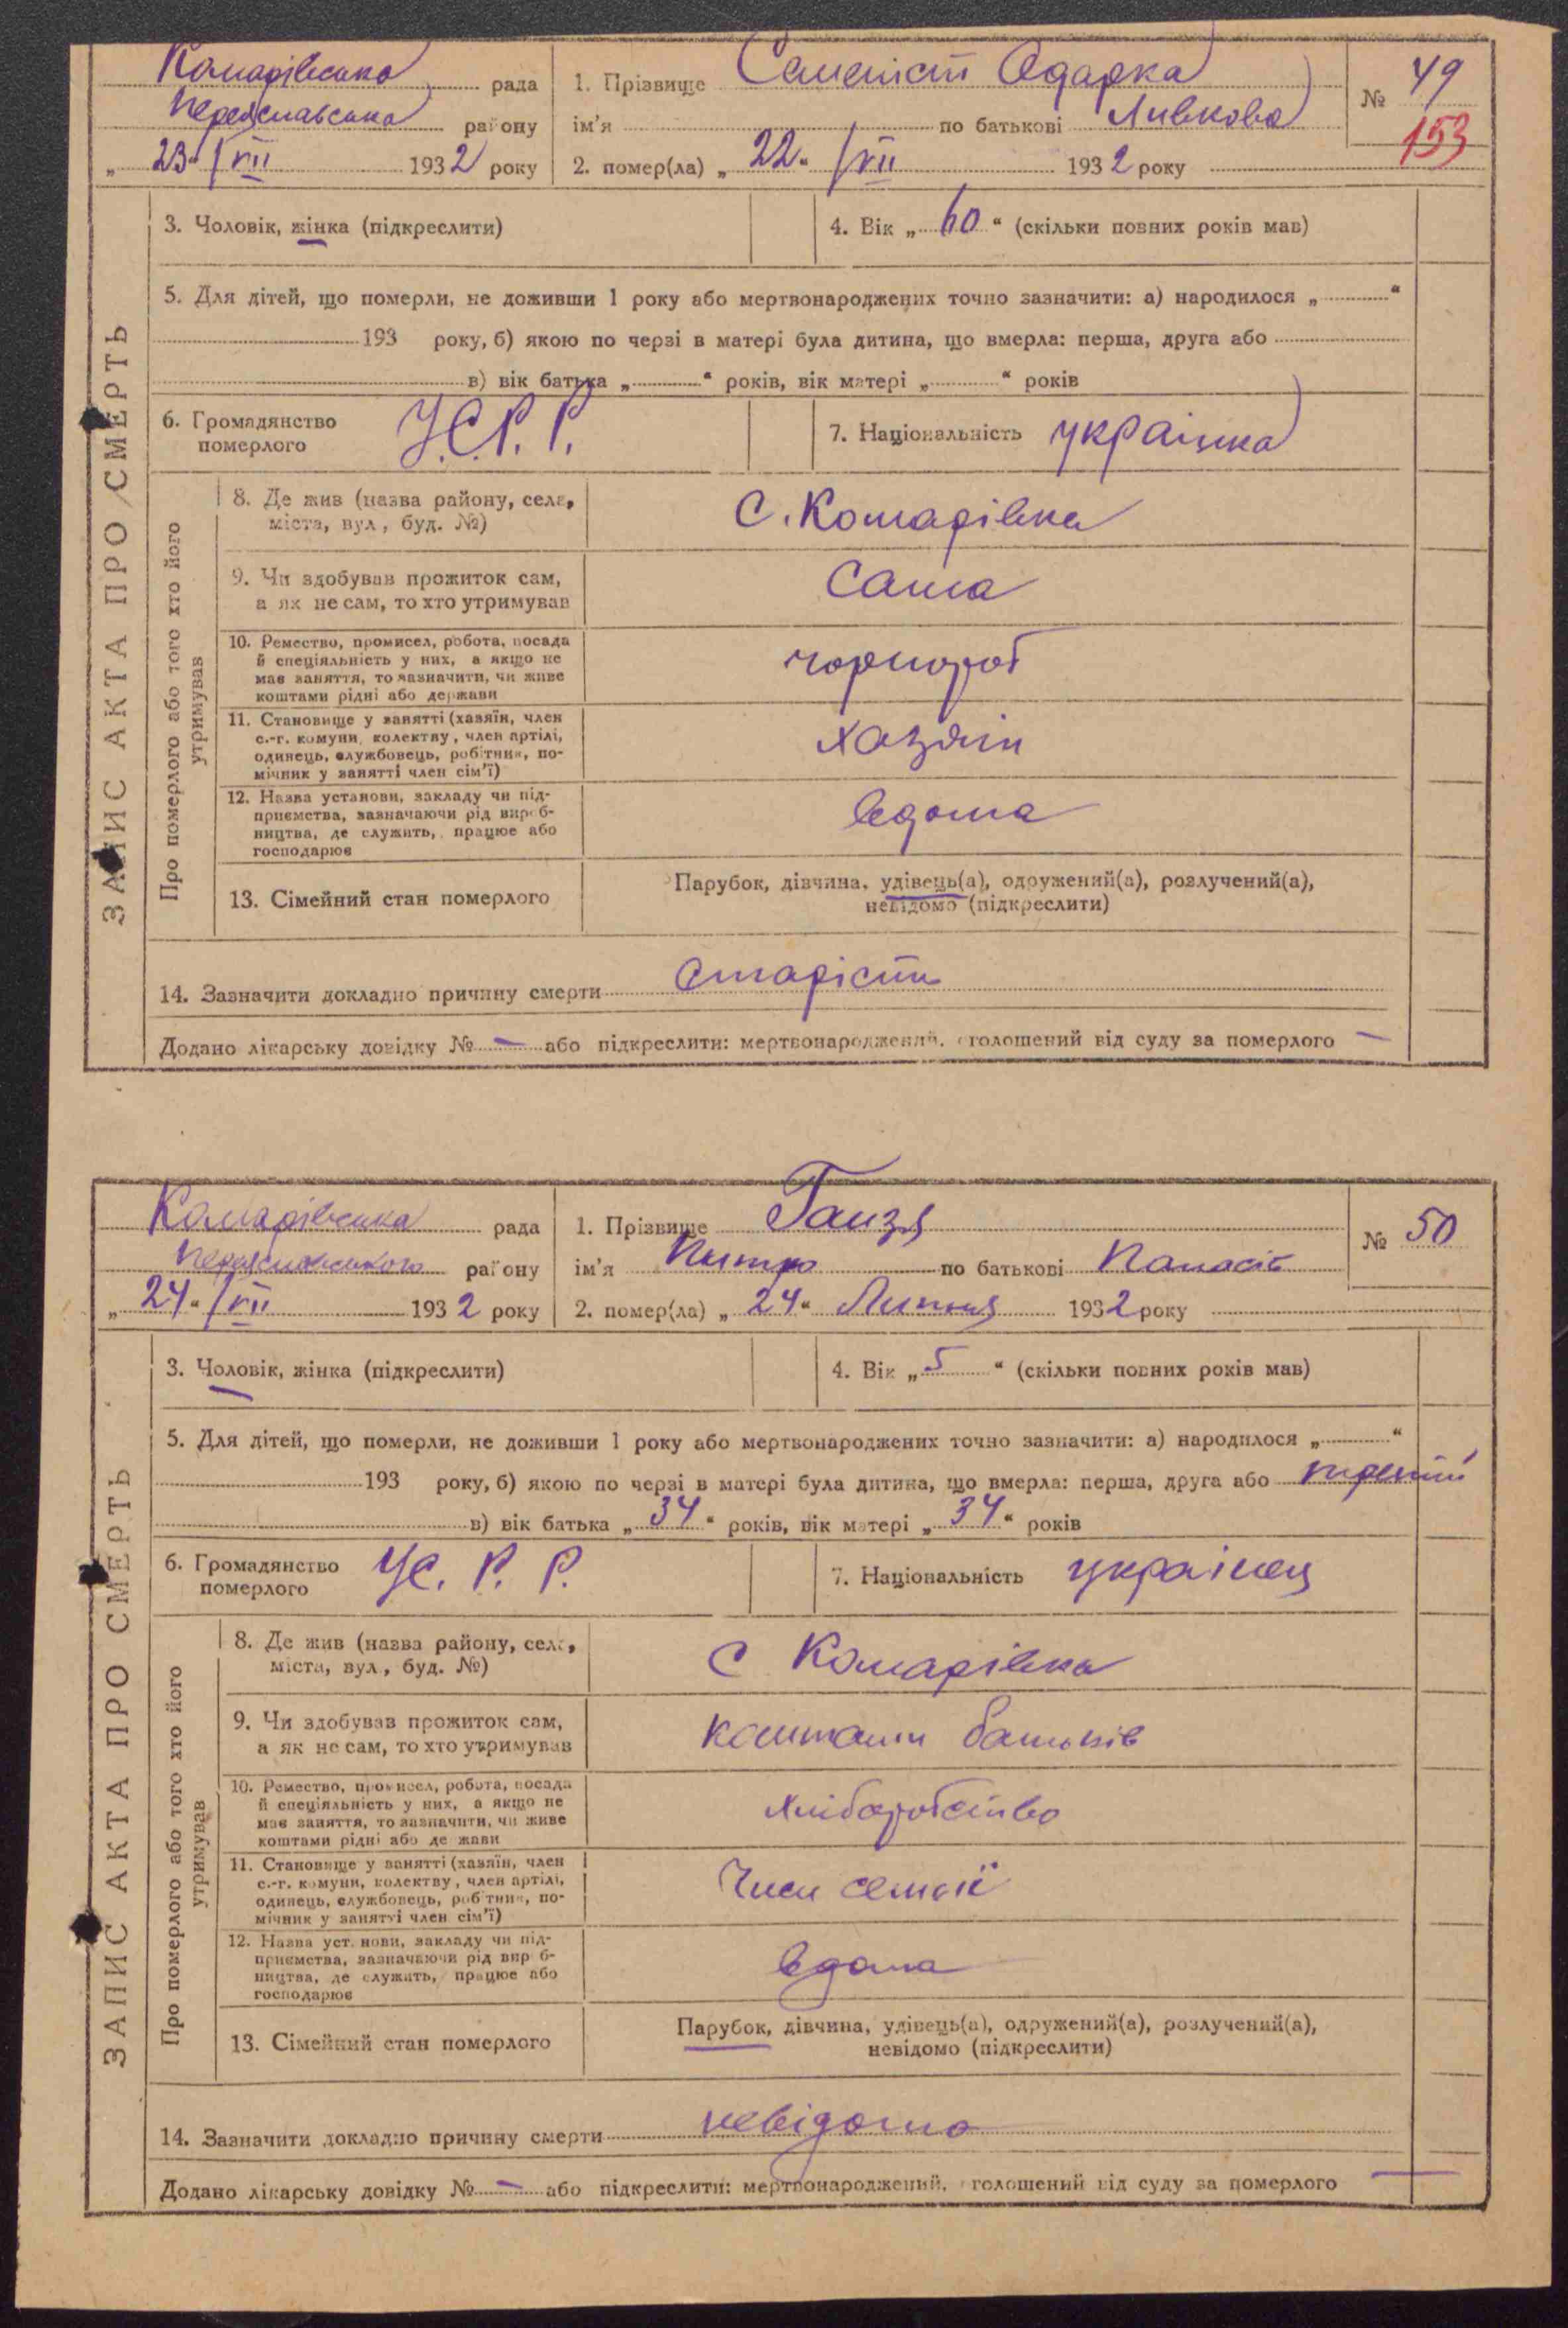 Комарівська рада 1. Прізвище Семеніст Одарка № 49
Переяславська району ім'я по батькові Ливкова 153
„ 23 “ / VII 1932 року 2. помер(ла) „ 22 “ / VII 1932 року
ЗАПИС АКТА ПРО СМЕРТЬ
3. Чоловік, жінка (підкреслити) 4. Вік „ 60 “ (скільки повних років мав)
5. Для дітей, що померли, не доживши 1 року або мертвонароджених точно зазначити: а) народилося „ “
193 року, б) якою по черзі в матері була дитина, що вмерла: перша, друга або
в) вік батька „ “ років, вік матері „ “ років
6. Громадянство
померлого У.С.Р.Р. 7. Національність українка
Про померлого або того хто його
утримував
8. Де жив (назва району, села,
міста, вул., буд. №) С. Комарівка
9. Чи здобував прожиток сам,
а як не сам, то хто утримував сама
10. Ремество, промисел, робота, посада
й спеціяльність у них, а якщо не
мав заняття, то зазначити, чи живе
коштами рідні або держави чорнороб
11. Становище у занятті (хазяїн, член
с.-г. комуни, колектву, член артілі,
одинець, службовець, робітник, по-
мічник у занятті член сім'ї) хазяїн
12. Назва установи, закладу чи під-
приємства, зазначаючи рід вироб-
ництва, де служить, працює або
господарює вдома
13. Сімейний стан померлого Парубок, дівчина, удівець(а), одружений(а), розлучений(а),
невідомо (підкреслити)
14. Зазначити докладно причину смерти старість
Додано лікарську довідку № — або підкреслити: мертвонароджений, оголошений від суду за померлого —
Комарівська рада 1. Прізвище Ганзя № 50
Переяславського району ім'я Петро по батькові Панасів
„ 24 “ / VII 1932 року 2. помер(ла) „ 24 “ Липня 1932 року
ЗАПИС АКТА ПРО СМЕРТЬ
3. Чоловік, жінка (підкреслити) 4. Вік „ 5 “ (скільки повних років мав)
5. Для дітей, що померли, не доживши 1 року або мертвонароджених точно зазначити: а) народилося „ “
193 року, б) якою по черзі в матері була дитина, що вмерла: перша, друга або третій
в) вік батька „ 34 “ років, вік матері „ 34 “ років
6. Громадянство
померлого УС. Р. Р. 7. Національність українец
Про померлого або того хто його
утримував
8. Де жив (назва району, села,
міста, вул., буд. №) С Комарівка
9. Чи здобував прожиток сам,
а як не сам, то хто утримував коштами батьків
10. Ремество, промисел, робота, посада
й спеціяльність у них, а якщо не
мав заняття, то зазначити, чи живе
коштами рідні або держави хліборобство
11. Становище у занятті (хазяїн, член
с.-г. комуни, колектву, член артілі,
одинець, службовець, робітник, по-
мічник у занятті член сім'ї) Член семьї
12. Назва установи, закладу чи під-
приємства, зазначаючи рід вироб-
ництва, де служить, працює або
господарює вдома
13. Сімейний стан померлого Парубок, дівчина, удівець(а), одружений(а), розлучений(а),
невідомо (підкреслити)
14. Зазначити докладно причину смерти невідомо
Додано лікарську довідку № — або підкреслити: мертвонароджений, оголошений від суду за померлого —